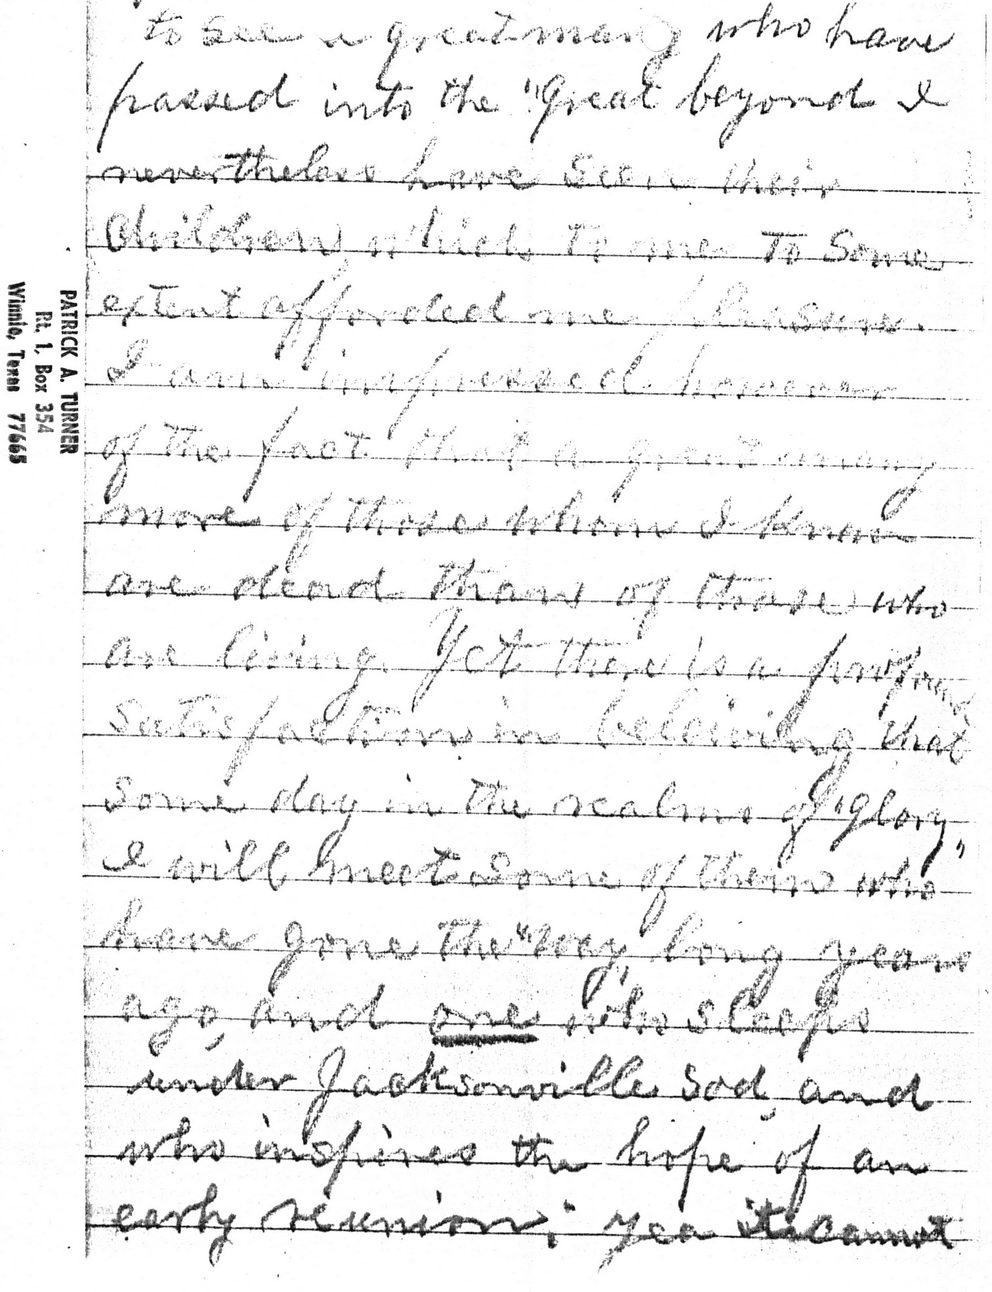 to see a great many who have
passed into the "Great beyond I
nevertheless have seen their
Children, which to me to some
extent afforded me pleasure.
I am impressed however
of the fact that a great many
more of those whom I know
are dead than of those who
are living. Yet there is a profound
satisfaction in beleiving that
some day in the realms of "Glory,"
I will meet some of them who
have gone the "way, long years
ago, and one who sleeps
under Jacksonville sod, and
who inspires the hope of an
early reunion; yea it cannot
PATRICK A. TURNER
Rt. 1, Box 354
Winnie, Texas 77665